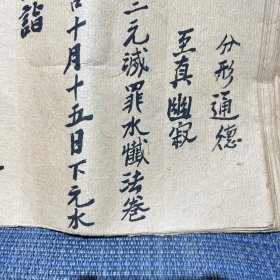 分形通德
至真幽寂
三元滅罪水懺法卷
十月十五日下元水
詣